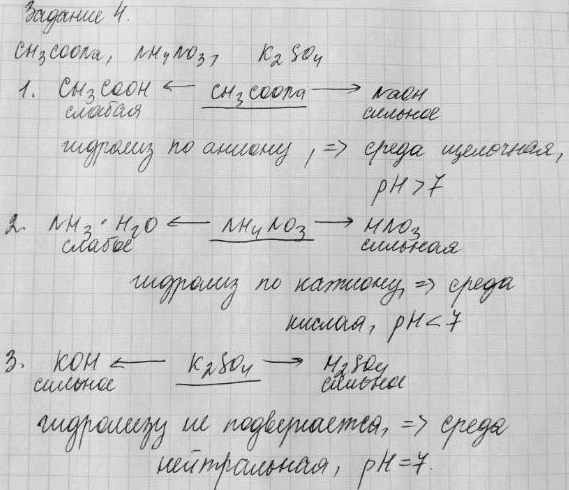 Задание 4.
CH₃COONa, NH₄NO₃, K₂SO₄
1. CH₃COOH ← CH₃COONa → NaOH
слабая сильное
гидролиз по аниону, => среда щелочная,
pH > 7
2. NH₃·H₂O ← NH₄NO₃ → HNO₃
слабое сильная
гидролиз по катиону, => среда
кислая, pH < 7
3. KOH ← K₂SO₄ → H₂SO₄
сильное сильное
гидролизу не подвергается, => среда
нейтральная, pH = 7.